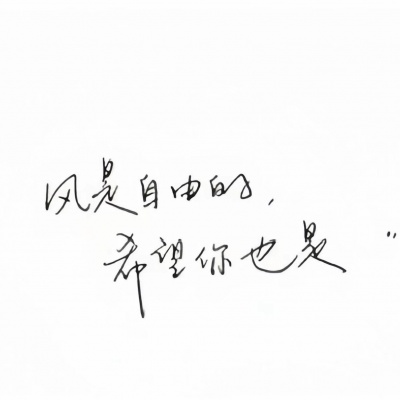 风是自由的,
希望你也是 "